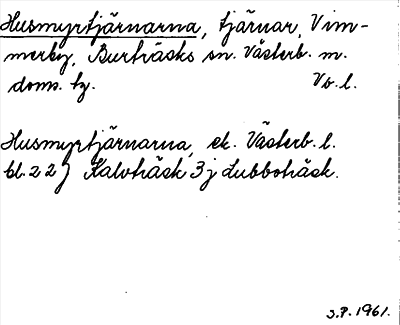 Husmyrtjärnarna, tjärnar, Vim-
merby, Burträsks sn. Västerb. m.
doms. tg. Vb. l.
Husmyrtjärnarna, ek. Västerb. l.
bl. 22) Kalvträsk 3 j Lubboträsk.
S.P. 1961.